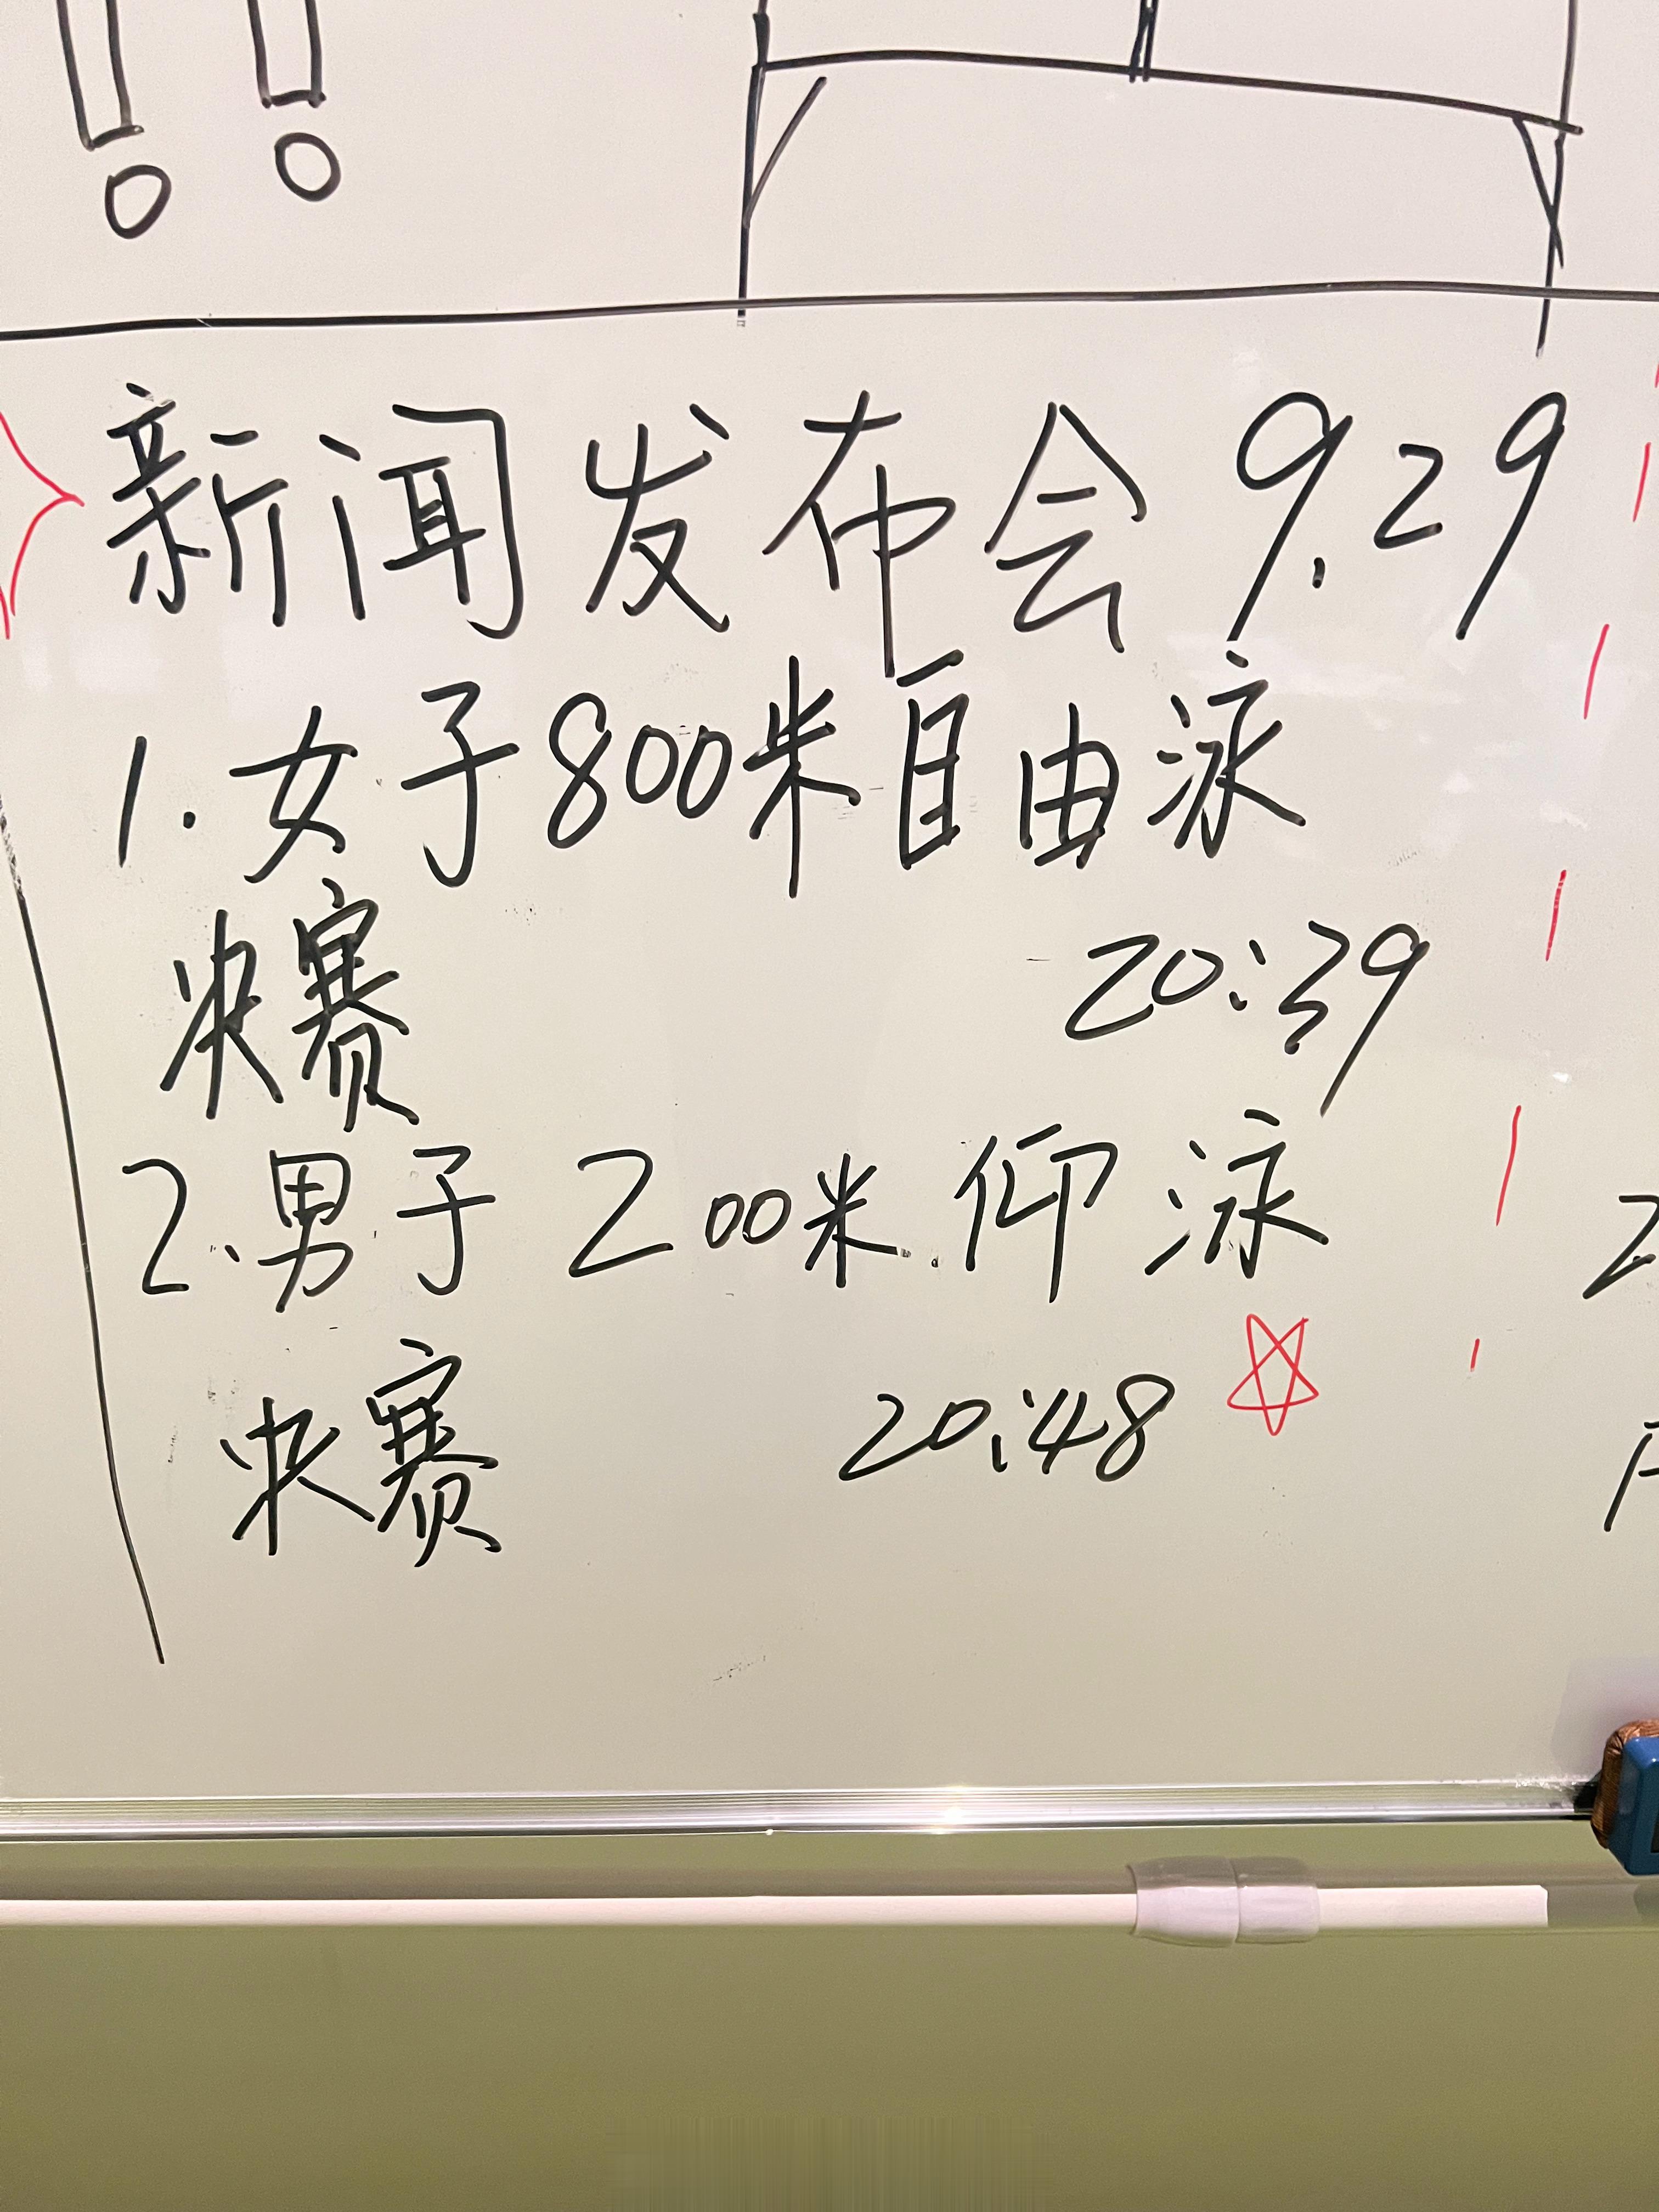 新闻发布会 9.29
1.女子800米自由泳
决赛 20:39
2.男子 200米仰泳
决赛 20:48